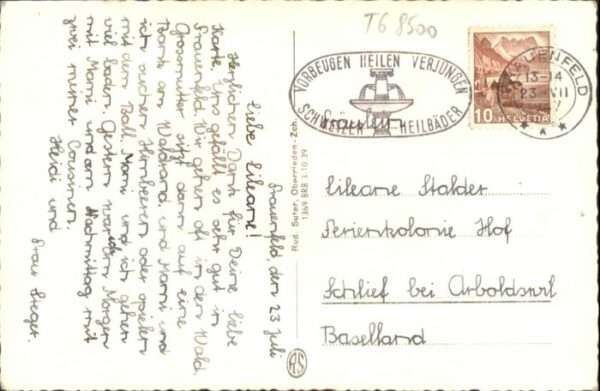 T6 8500
VORBEUGEN HEILEN VERJÜNGEN
SCHWEIZER HEILBÄDER
FRAUENFELD
13-14
23. VII
10 HELVETIA
Fräulein
Liliane Stalder
Ferienkolonie Hof
Schlief bei Arboldswil
Baselland
Frauenfeld den 23 Juli
Liebe Liliane!
Herzlichen Dank für Deine liebe
Karte. Uns gefällt es sehr gut in
Frauenfeld. Wir gehen oft in den Wald
Grossmutter sitzt dann auf eine
Bank am Waldrand und Mami und
ich suchen Himbeeren oder spielen
mit dem Ball. Mami und ich gehen
viel baden. Gestern waren wir am Morgen
mit Mami und am Nachmittag mit
zwei meiner Cousinen.
Heidi und
Frau
Rud. Suter, Oberrieden-Zch.
1369 BRB 3.10.39
RS